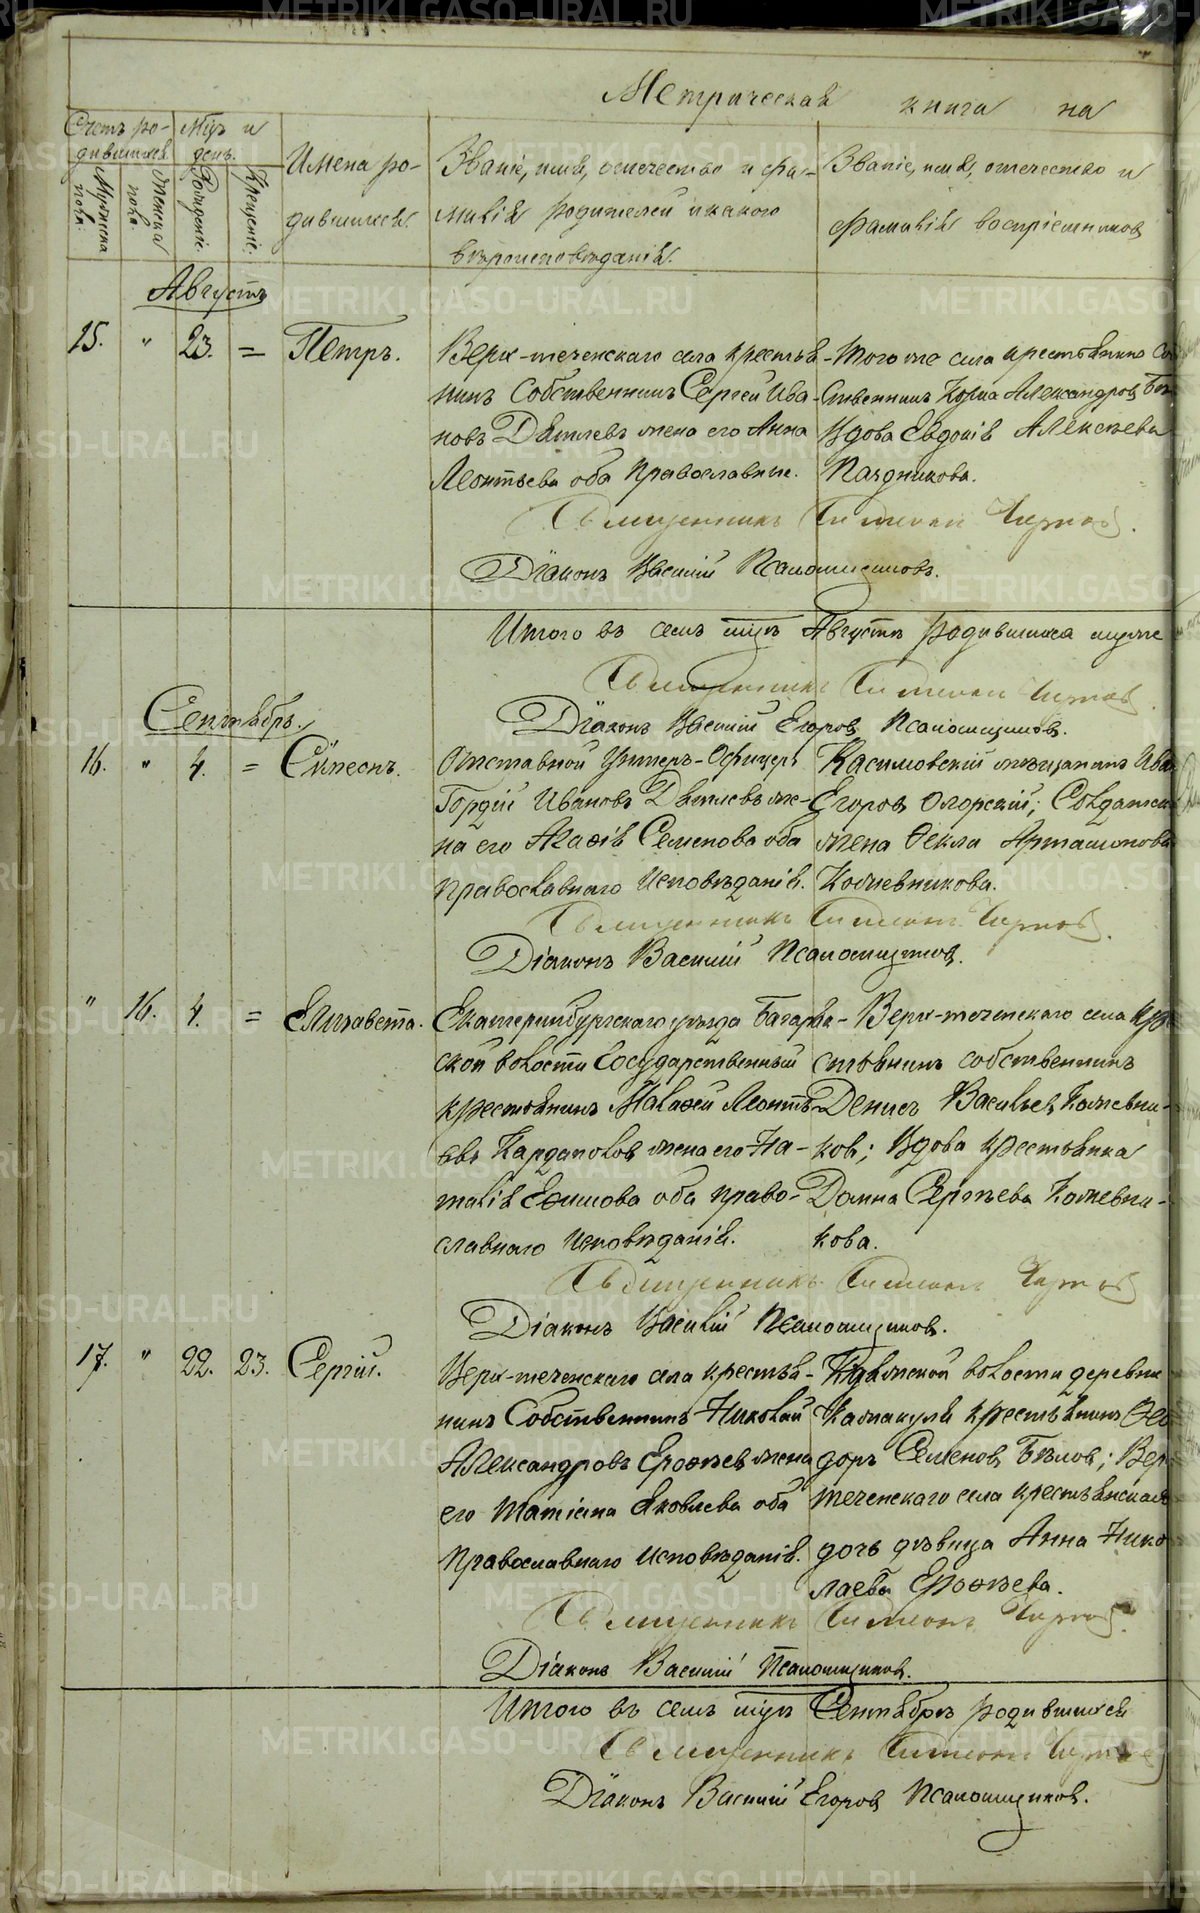 Метрическая книга на
Счетъ ро-
дившихся
Мужеска
пола.
Женска
пола.
Мѣц и
день.
Рожденіе.
Крещеніе.
Имена ро-
дившихся.
Званіе, имя, отечество и фа-
милія родителей и какого
вѣроисповѣданія.
Званіе, имя, отечество и
фамилія воспріемниковъ
Августъ
15. " 23. = Петръ.
Верх-теченскаго села крестья-
нинъ Собственникъ Сергей Ива-
новъ Дятлевъ жена его Анна
Леонтьева оба православные.
Того же села крестьянинъ Со
ственникъ Козма Александровъ
Вдова Евдокія Алексѣева
Паздникова.
Священникъ Симеонъ Чирковъ.
Діаконъ Василій Псаломщиковъ.
Итого въ семъ мцѣ Августѣ родившихся муже
Священникъ Симеонъ Чирковъ.
Діаконъ Василій Егоровъ Псаломщиковъ.
Сентябрь.
16. " 4. = Сѵмеонъ.
Отставной Унтеръ-Офицеръ
Гордій Ивановъ Дятлевъ же-
на его Агафія Семенова оба
православнаго исповѣданія.
Касимовскій мѣщанинъ Ива
Егоровъ Олорскій; Солдатска
жена Ѳекла Артамонова
Кожевникова.
Священникъ Симеонъ Чирковъ.
Діаконъ Василій Псаломщиковъ.
" 16. 4. = Елизавета.
Екатеринбургскаго уѣзда Багаряк-
ской волости Государственный
крестьянинъ Малафей Леонть-
евъ Кардаполовъ жена его На-
талія Ефимова оба право-
славнаго исповѣданія.
Верх-теченскаго села кре
стьянинъ собственникъ
Денисъ Васильевъ Кожевни-
ковъ; Вдова крестьянка
Домна Сергѣева Кожевни-
кова.
Священникъ Симеонъ Чирковъ
Діаконъ Василій Псаломщиковъ.
17. " 22. 23. Сергій.
Верх-теченскаго села крестья-
нинъ Собственникъ Николай
Александровъ Ерофѣевъ жена
его Татіана Яковлева оба
Православнаго исповѣданія.
волости деревни
крестьянинъ Ѳео
доръ Семеновъ Бѣловъ; Вер
теченскаго села крестьянская
дочь дѣвица Анна Нико
лаева Ерофѣева.
Священникъ Симеонъ Чирковъ.
Діаконъ Василій Псаломщиковъ.
Итого въ семъ мцѣ Сентябрѣ родившихся
Священникъ Симеонъ Чирковъ
Діаконъ Василій Егоровъ Псаломщиковъ.
METRIKI.GASO-URAL.RU